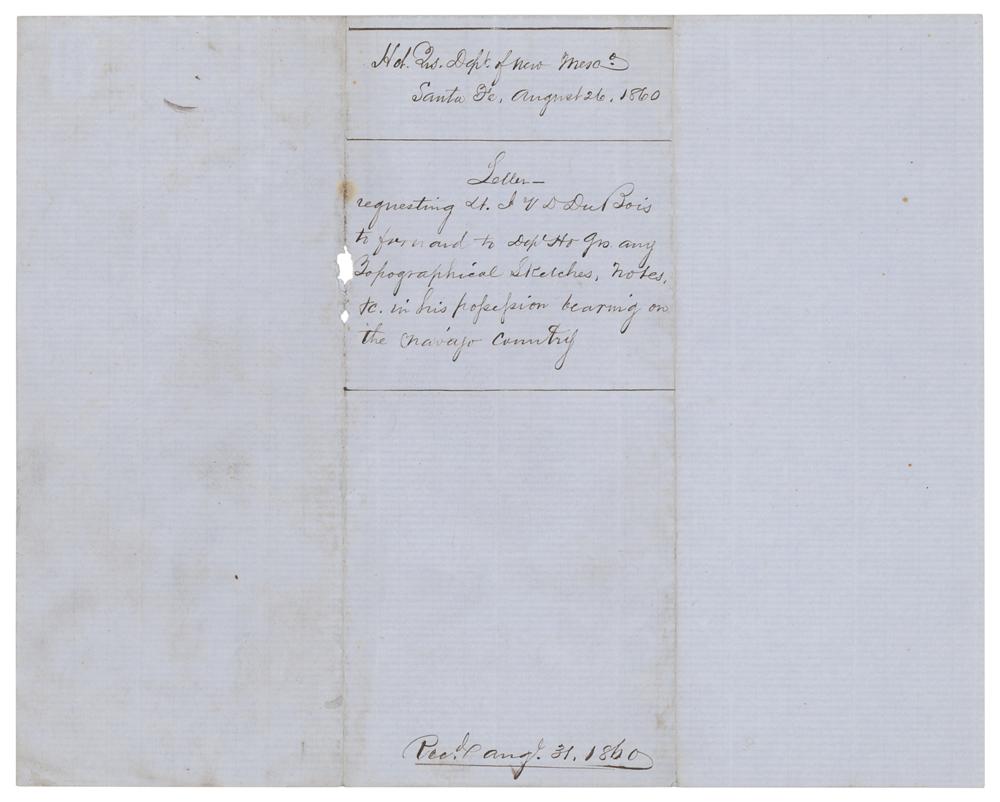 Hd. Qrs. Dept. of New Mexco
Santa Fe, August 26, 1860
Letter—
requesting Lt. J V D DuBois
to forward to Dept Hd Qrs. any
Topographical Sketches, Notes,
&c. in his possession bearing on
the Navajo Country
Recd. Augt. 31. 1860